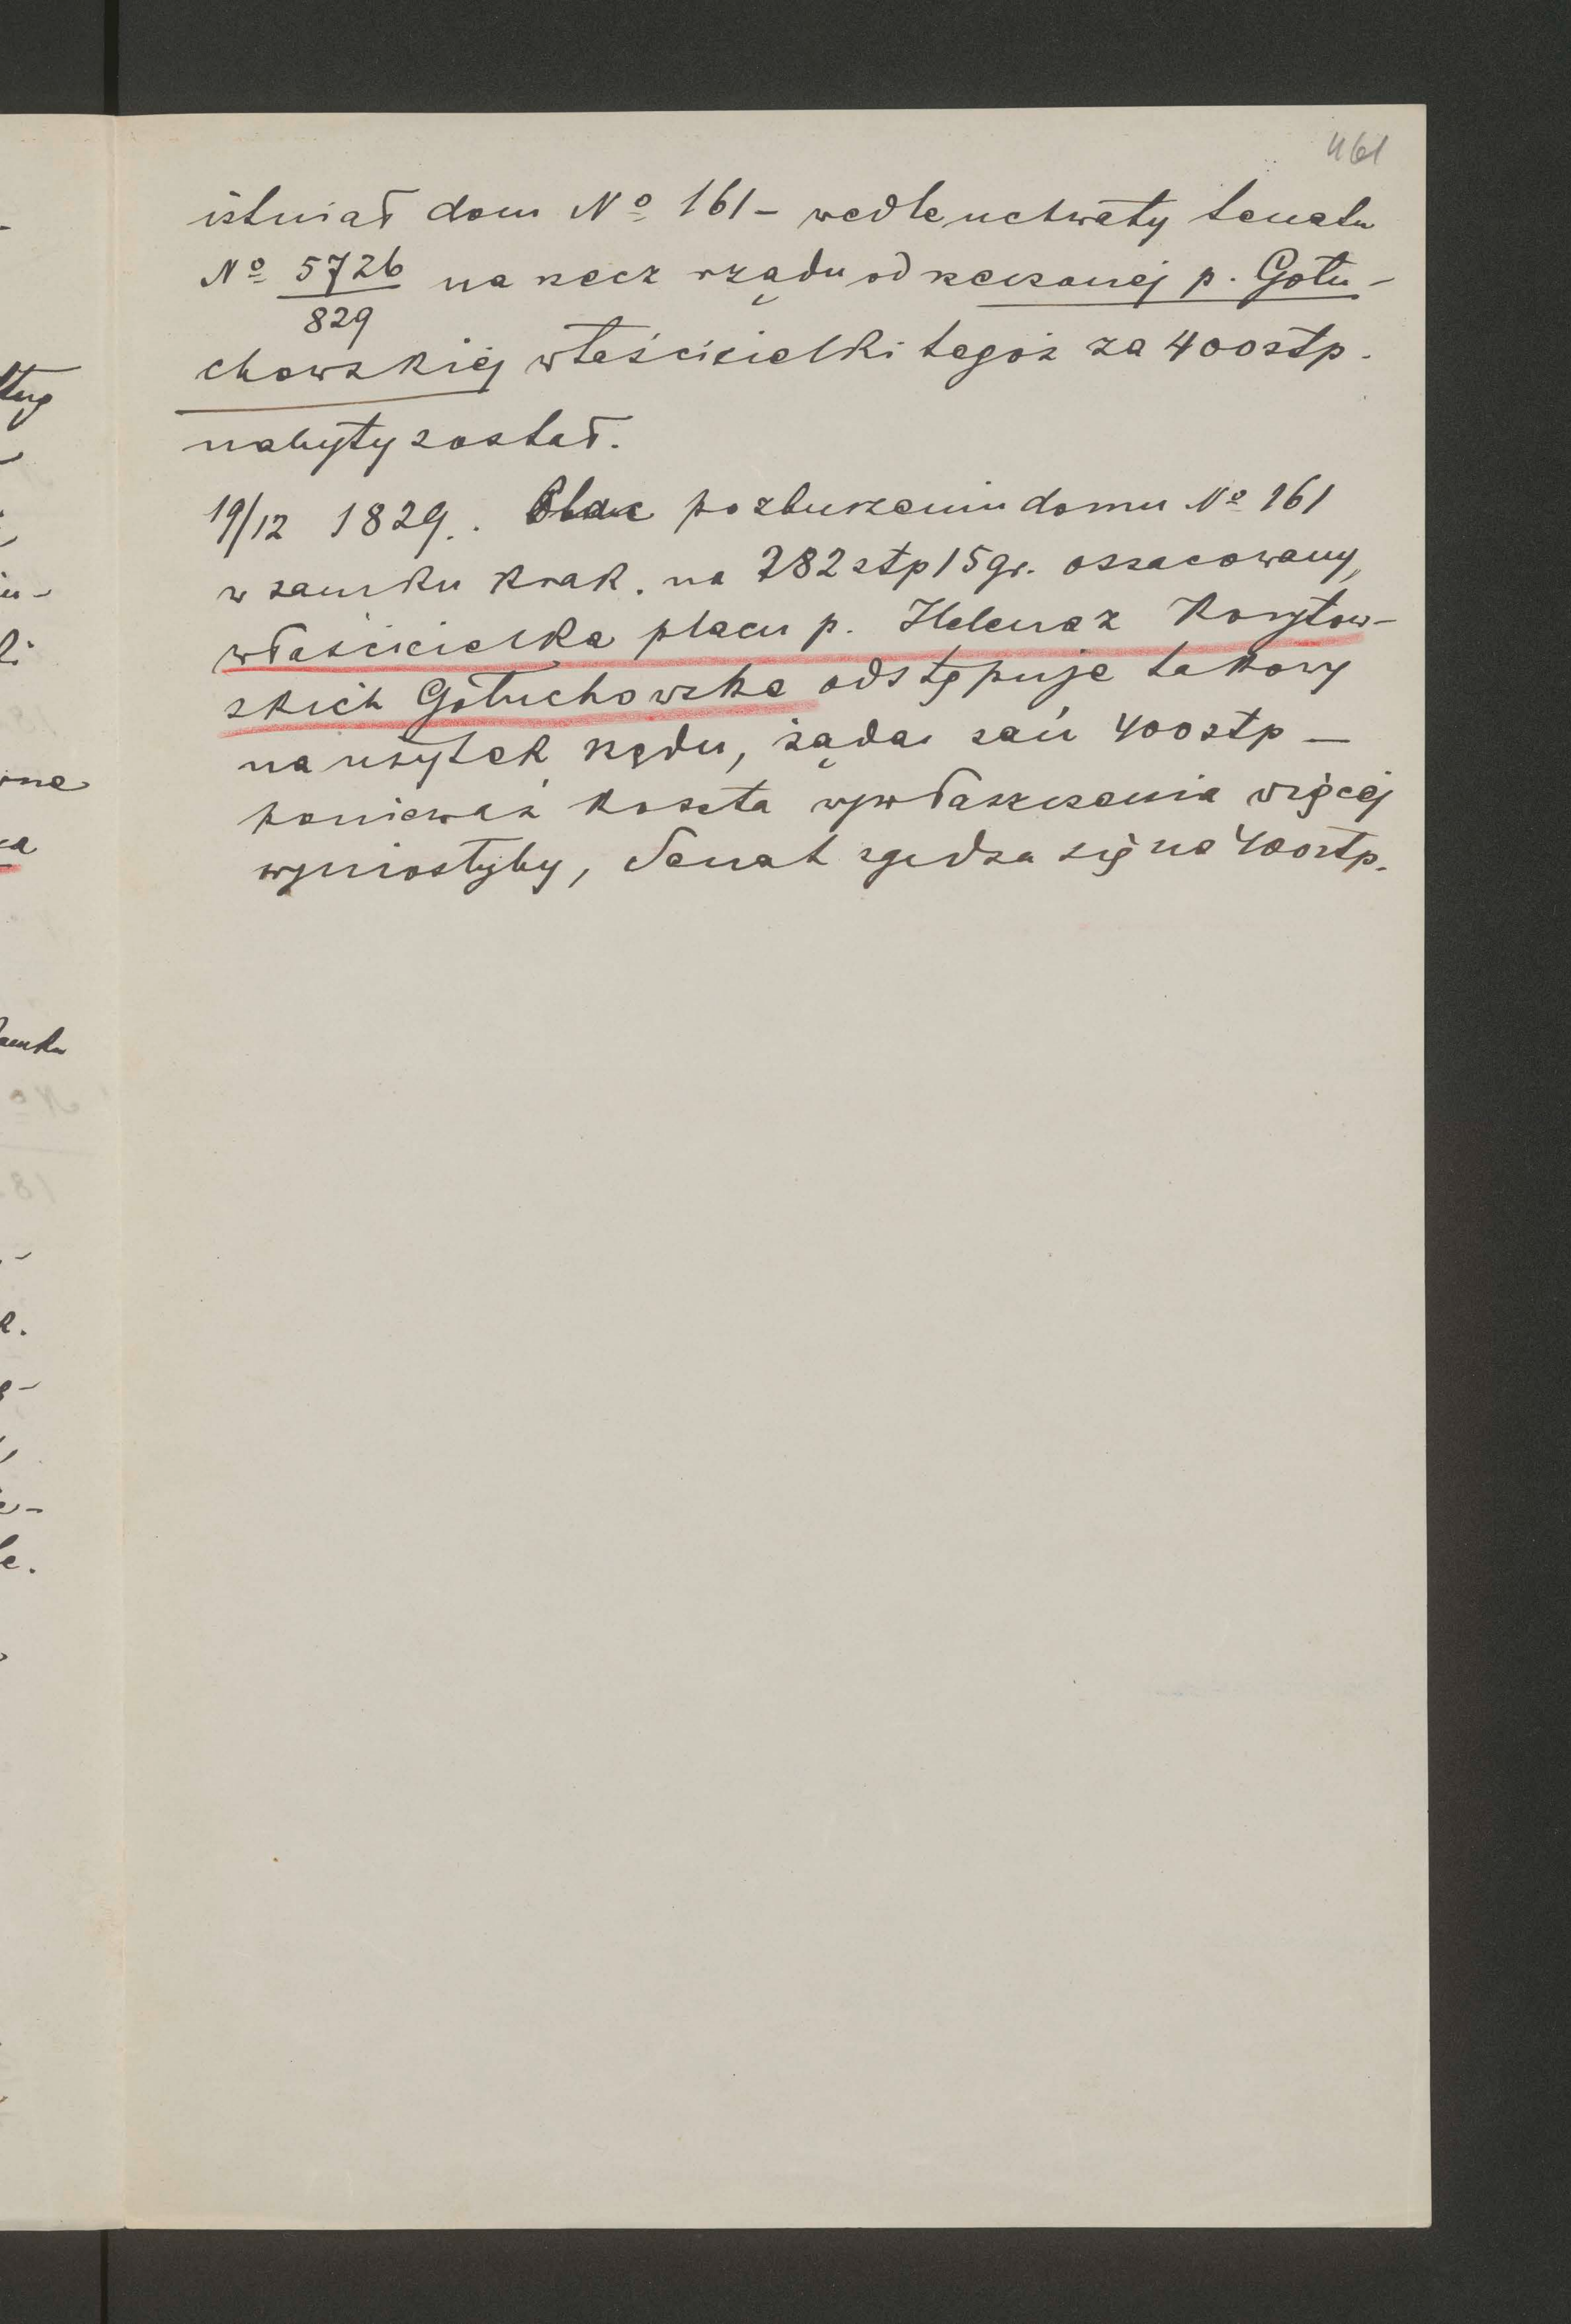 461
istniał dom Nº 161 – wedle uchwały senatu
Nº 5726/829 na rzecz rządu od rzeczonej p. Gołu-
chowskiej właścicielki tegoż za 400 złp.
nabyty został.
19/12 1829. Plac po zburzeniu domu Nº 161
w zamku Krak. na 282 złp 15 gr. oszacowany,
właścicielka placu p. Helena z Korytow-
skich Gołuchowska odstępuje takowy
na użytek rządu, żąda zań 400 złp –
ponieważ koszta wywłaszczenia więcej
wyniosłyby, Senat zgadza się na 400 złp.
ług
iu-
ki
zamku
Nº
18